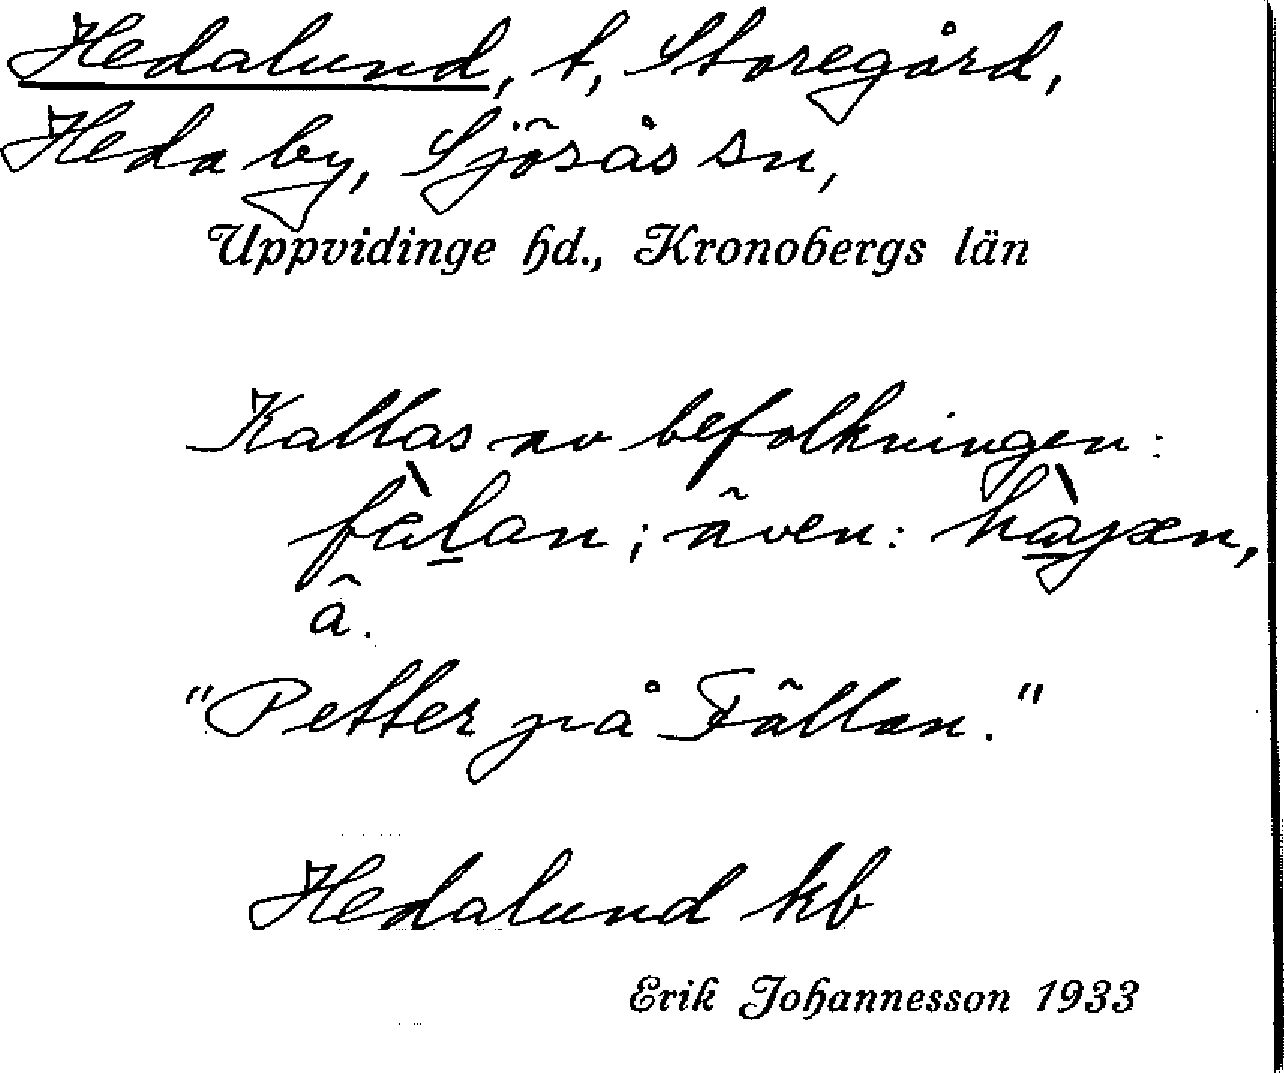 Hedalund, t, Storegård,
Heda by, Sjösås sn,
Uppvidinge hd., Kronobergs län
Kallas av befolkningen:
även:
â.
"Petter på Fällan."
Hedalund kb
Erik Johannesson 1933